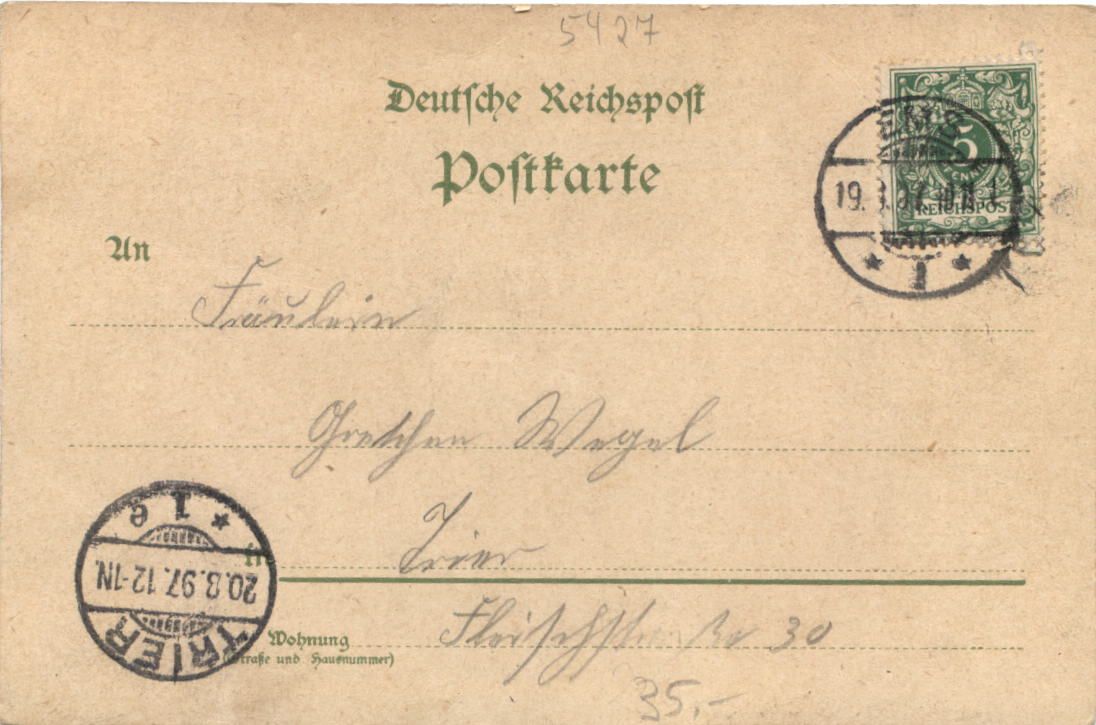 5427
Deutsche Reichspost
Postkarte
5
REICHSPOST
EMS
19. 97. 10-11
* 1 *
An
Fräulein
Gretchen Wegel
in Trier
Wohnung Fleischstraße 30
(Straße und Hausnummer)
* 1 e
20.8.97. 12-1N.
TRIER
35,-